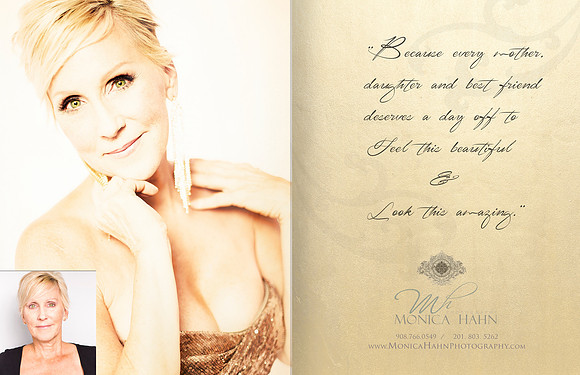 "Because every mother,
daughter and best friend
deserves a day off to
Feel this beautiful
&
Look this amazing."
Mh
MONICA HAHN
908.766.0549 / 201. 803. 5262
www.MonicaHahnPhotography.com